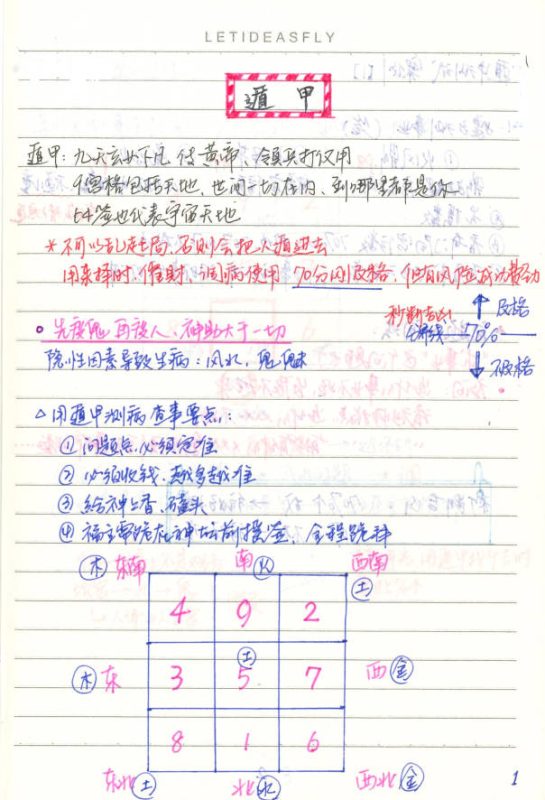 LETIDEASFLY
遁 甲
遁甲：九天玄女下凡，传黄帝，领兵打仗用
9宫格包括天地，世间一切在内，到哪里都是你
64签也代表宇宙天地
*不可以乱走局，否则会把人遁进去
用来择时、催财、调病使用 70分则及格，但有风险
秒断吉凶
及格
分界线 70%
不及格
先度鬼 再度人、神助大于一切
隐性因素导致生病：风水，鬼魅
△用遁甲测病查事要点：
① 问题点必须定准
② 必须收钱，越多越准
③ 给神上香，磕头
④ 福主需跪在神坛前摸签，全程跪拜
木 东南 南 火 西南 土
4 9 2
木 东 3 土 5 7 西 金
8 1 6
东北 土 北 水 西北 金
1